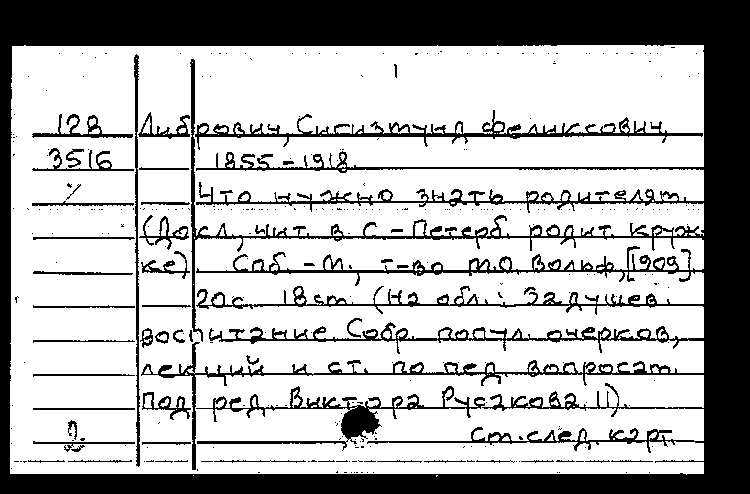 1
128 Либрович, Сигизмунд Феликсович,
3516 1855-1918.
% Что нужно знать родителям.
(Докл., чит. в С-Петерб. родит. круж-
ке). Спб.-М., т-во М.О. Вольф, [1909].
20с. 18см. (На обл.: Задушев.
воспитание. Собр. попул. очерков,
лекций и ст. по пед. вопросам.
Под ред. Виктора Русакова. 11).
2 См. след. карт.